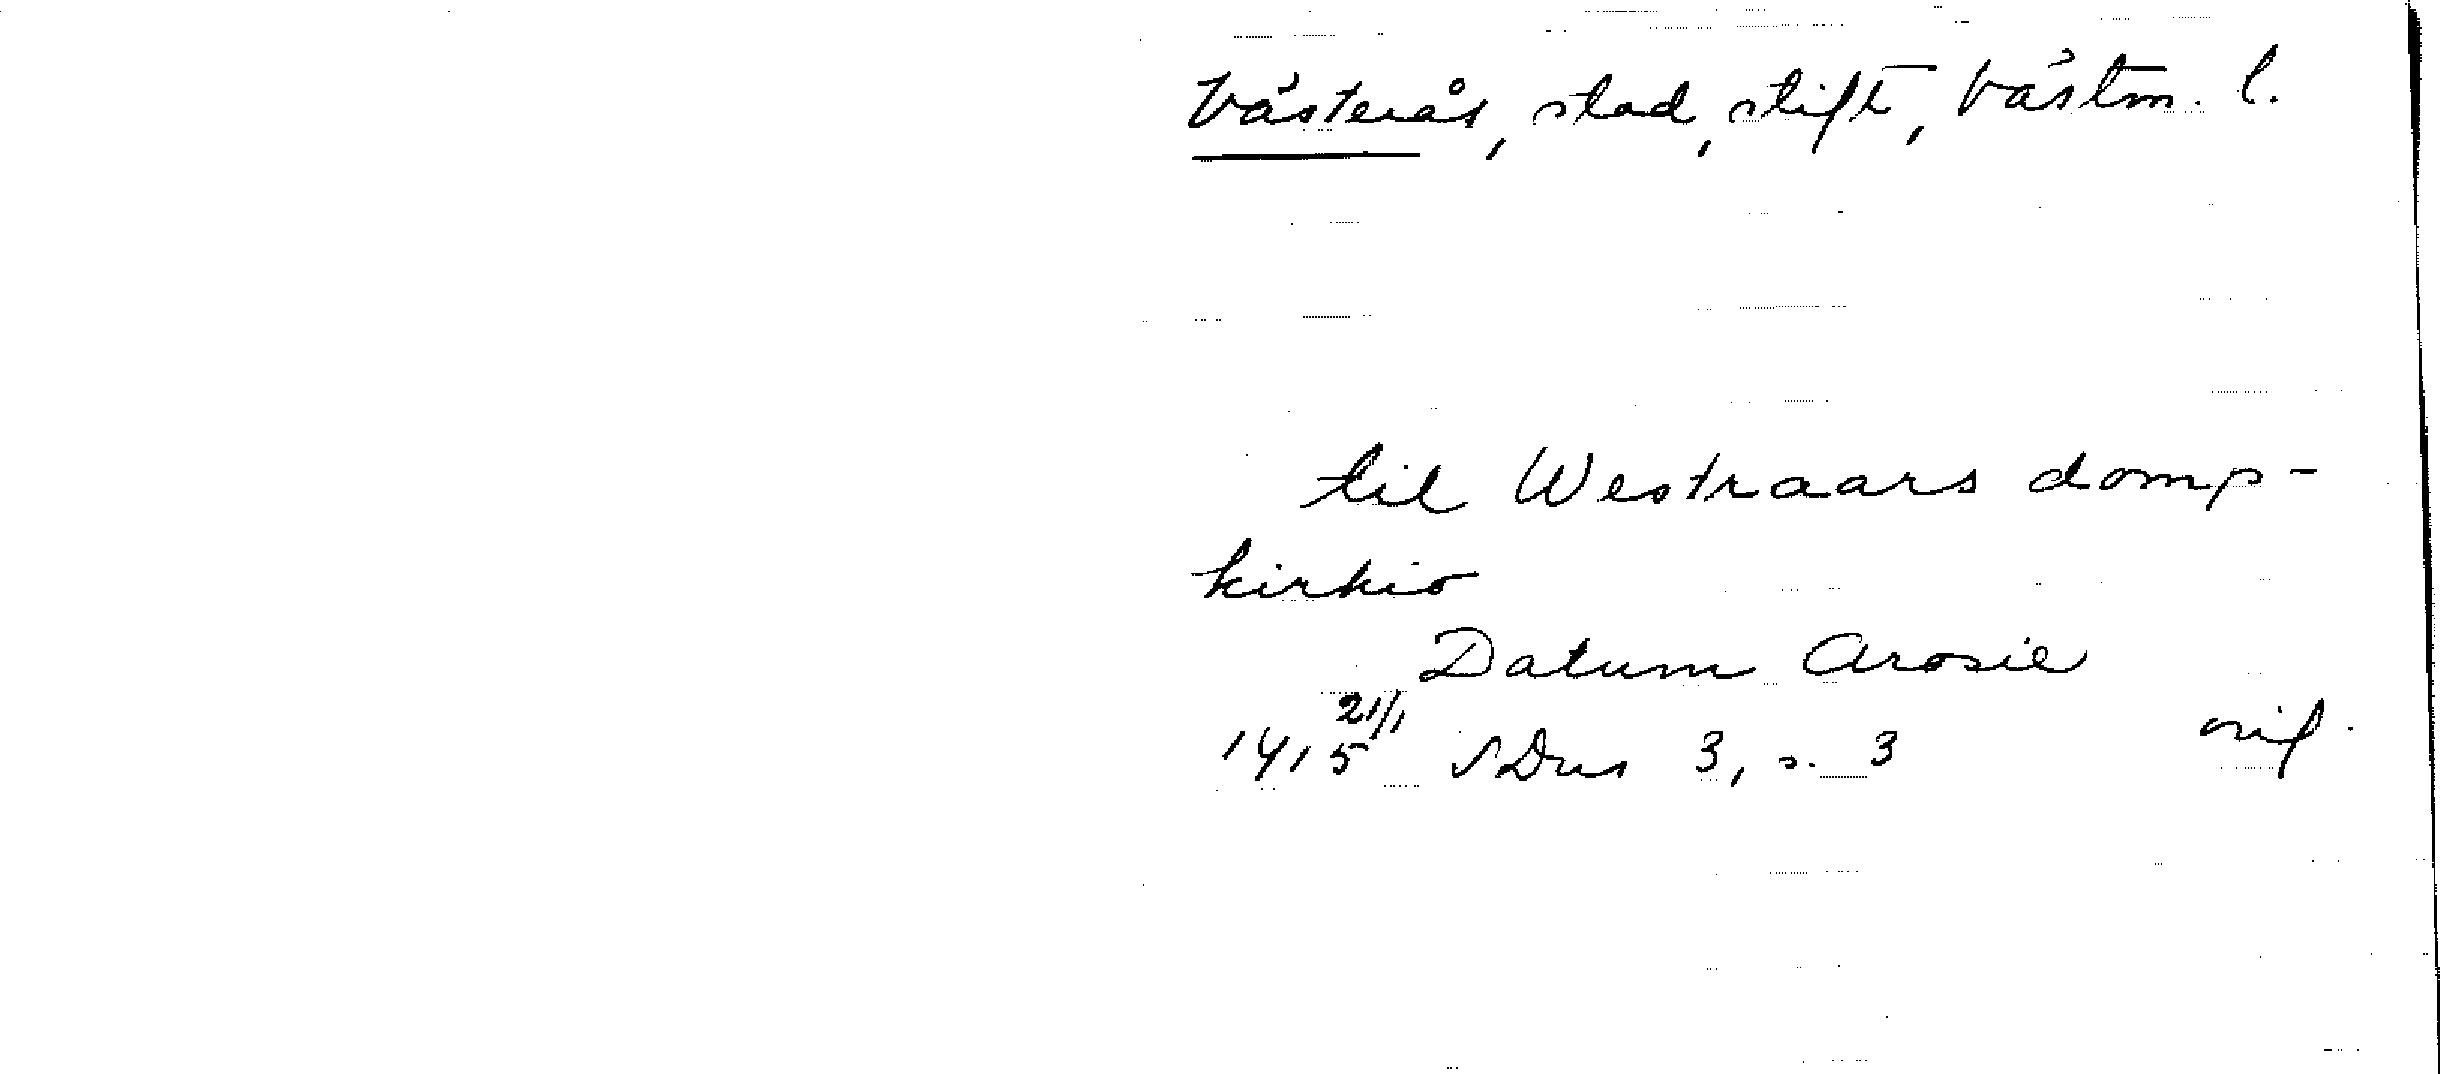 Västerås, stad, stift, Västm. l.
til Westraars domp-
kirkio
Datum Arosie
1415 21/1 SDns 3, s. 3 orig.